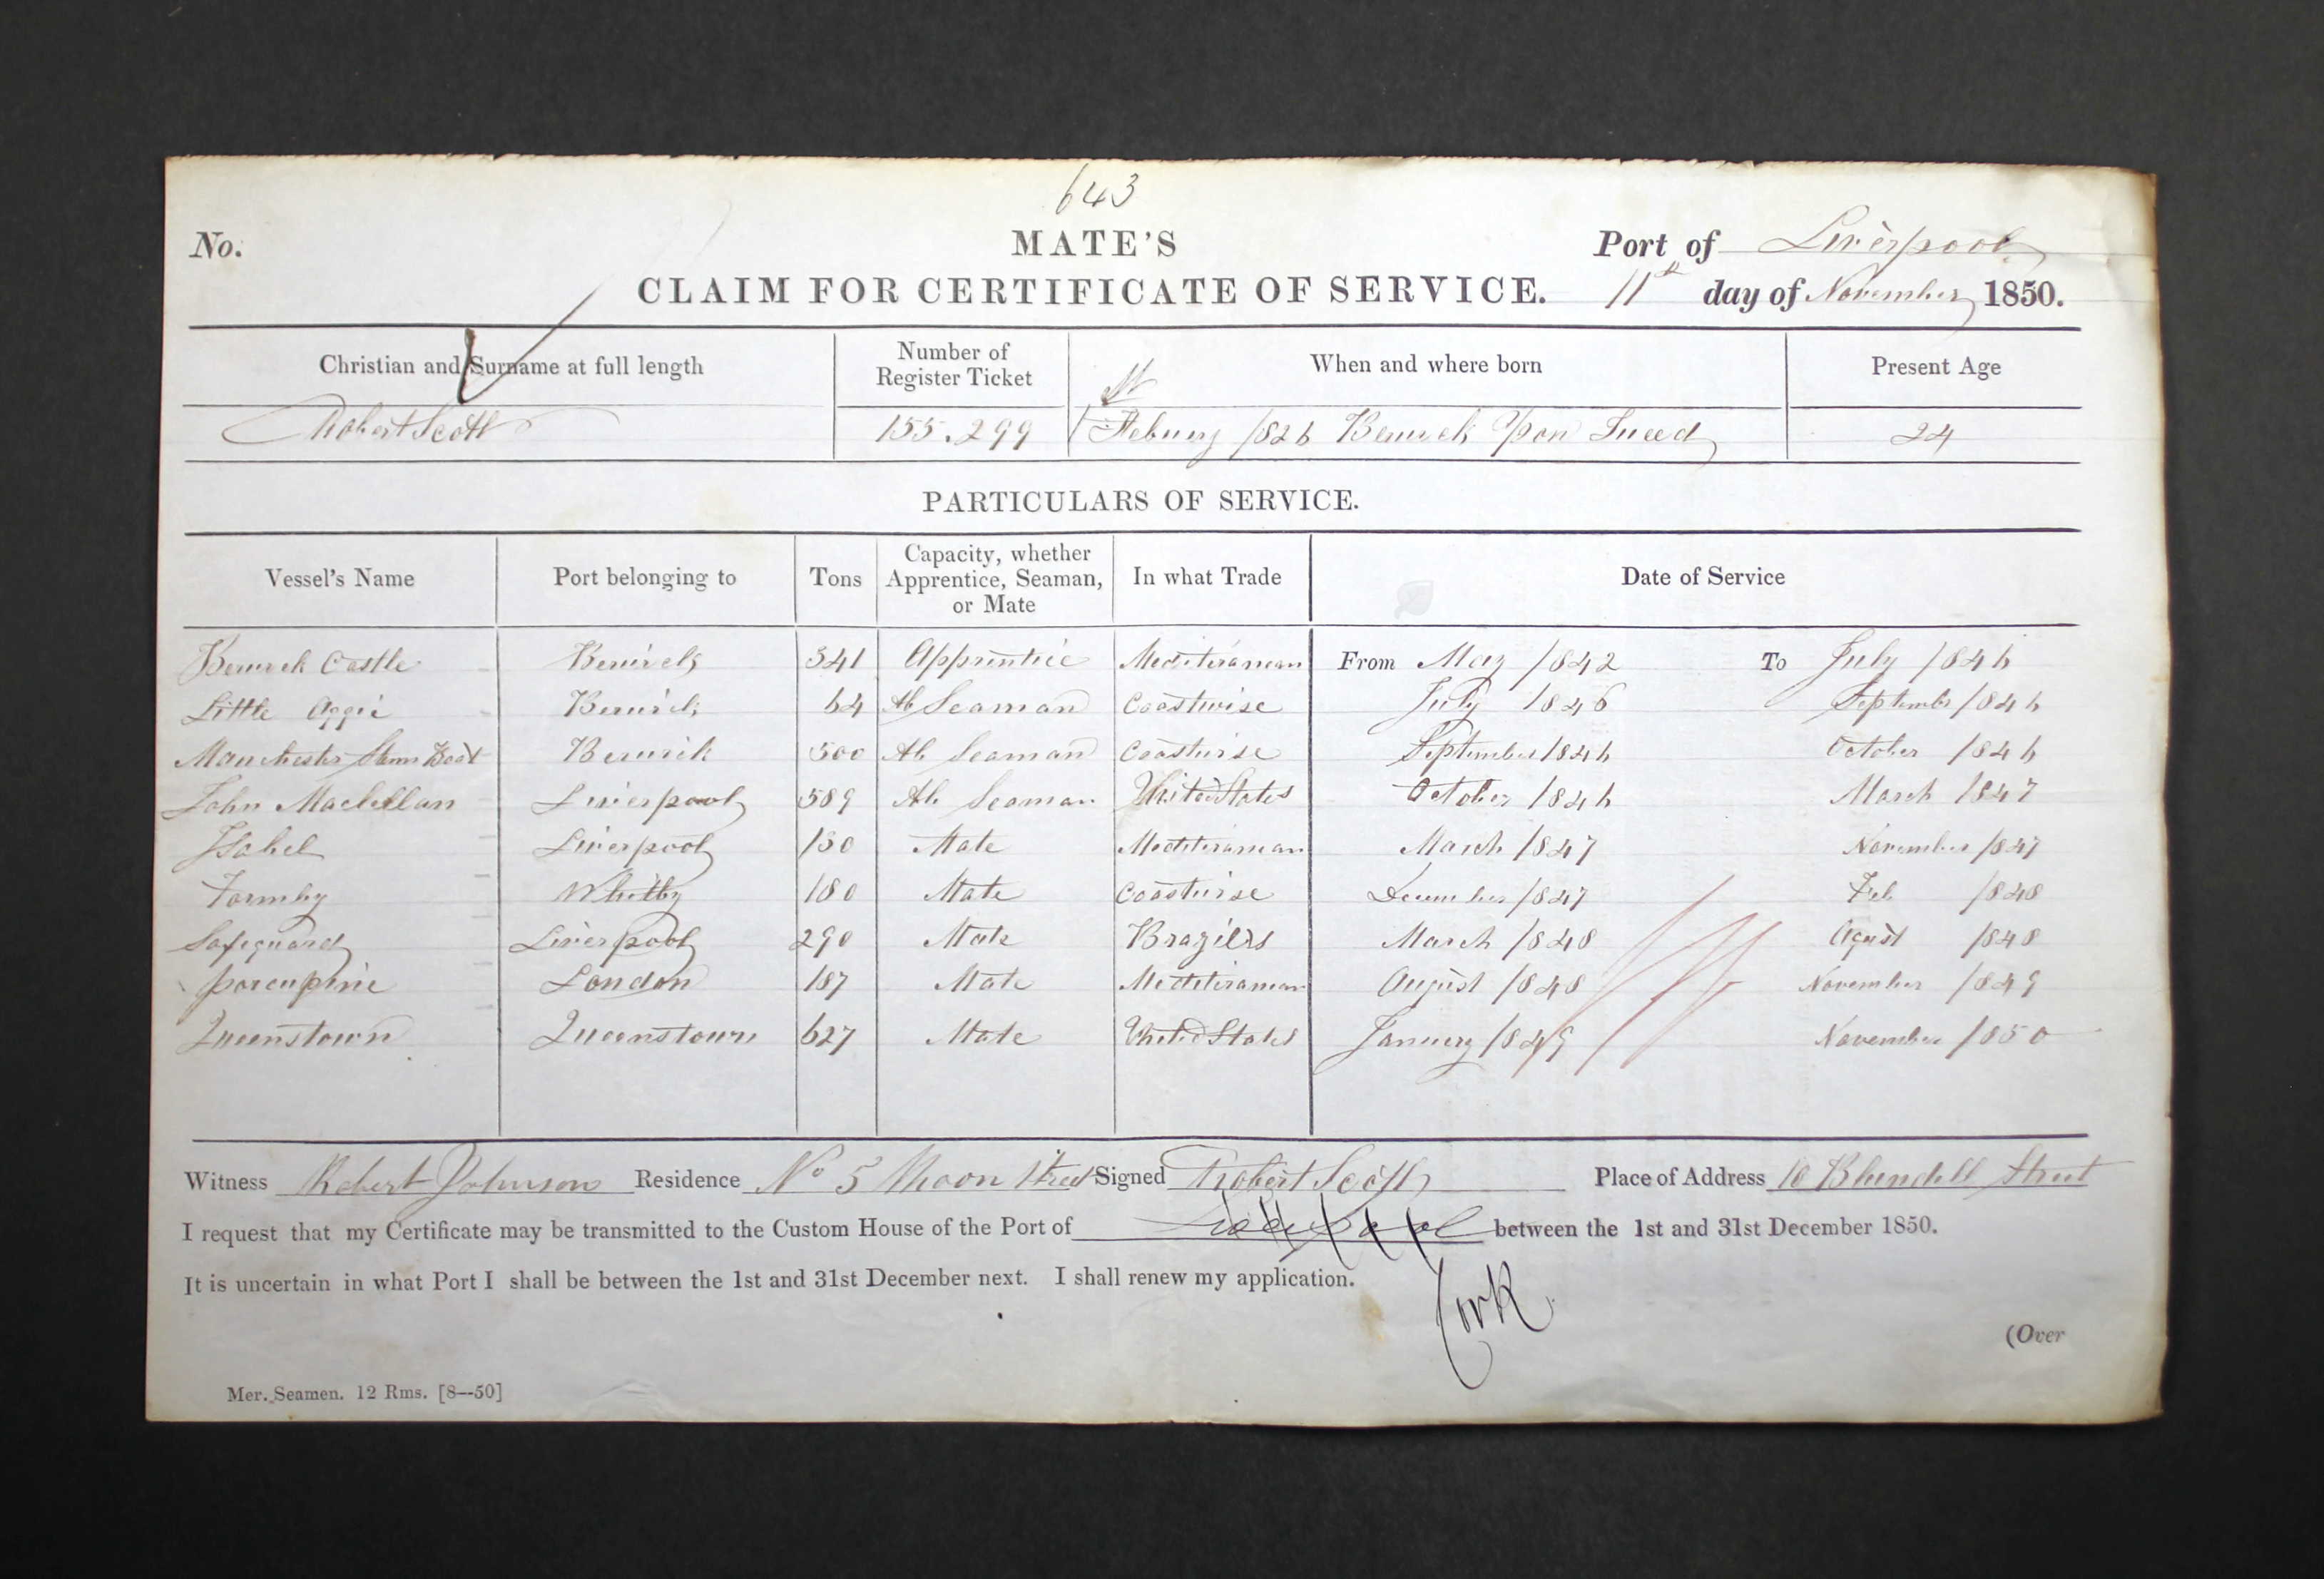 643
No. MATE'S Port of Liverpool
CLAIM FOR CERTIFICATE OF SERVICE. 11th day of November 1850.
Christian and Surname at full length Number of Register Ticket When and where born Present Age
Robert Scott 155.299 Febury 1826 Berwick Upon Tweed 24
PARTICULARS OF SERVICE.
Vessel's Name Port belonging to Tons Capacity, whether Apprentice, Seaman, or Mate In what Trade Date of Service
Berwick Castle Berwick 341 Apprentice Mediteranean From May 1842 To July 1846
Little Aggie Berwick 64 Ab Seaman Coastwise July 1846 September 1846
Manchester Steam Boat Berwick 500 Ab Seaman Coastwise September 1846 October 1846
John Maclellan Liverpool 589 Ab Seaman United States October 1846 March 1847
Isabel Liverpool 130 Mate Mediteranean March 1847 November 1847
Formby Whitby 180 Mate Coastwise December 1847 Feb 1848
Safeguard Liverpool 290 Mate Brazills March 1848 Agust 1848
porcupine London 187 Mate Mediteranean August 1848 November 1849
Queenstown Queenstown 627 Mate United States January 1849 November 1850
Witness Robert Johnson Residence No 5 Moon Street Signed Robert Scott Place of Address 10 Blundell Street
I request that my Certificate may be transmitted to the Custom House of the Port of Liverpool between the 1st and 31st December 1850.
It is uncertain in what Port I shall be between the 1st and 31st December next. I shall renew my application.
Cork
(Over
Mer. Seamen. 12 Rms. [8—50]